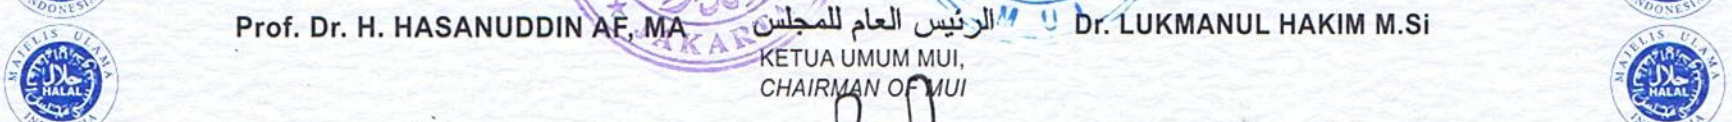 Prof. Dr. H. HASANUDDIN AF, MA الرئيس العام للمجلس Dr. LUKMANUL HAKIM M.Si
KETUA UMUM MUI,
CHAIRMAN OF MUI
MAJELIS ULAMA
حلال
HALAL
JAKAR
MAJELIS ULAMA
حلال
HALAL